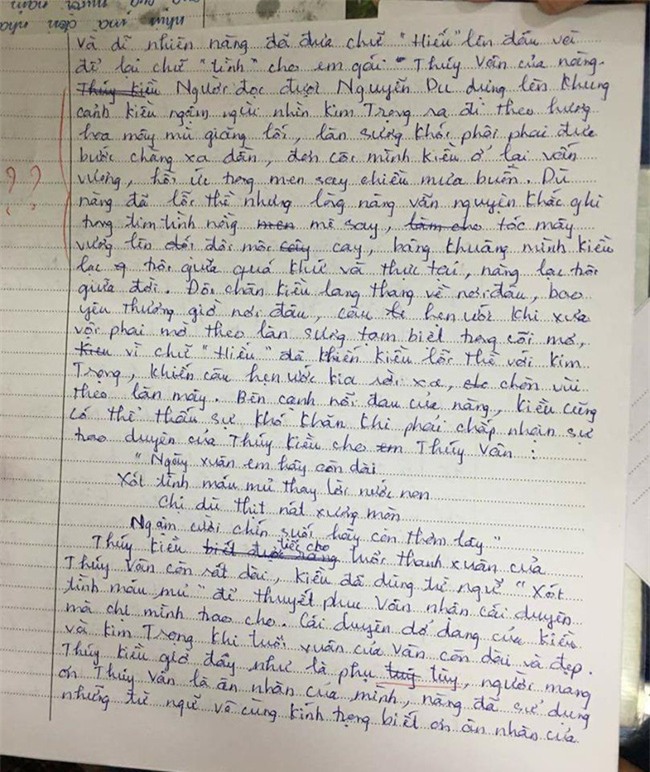 như mà đến nhà
Và dĩ nhiên nàng đã đưa chữ "Hiếu" lên đầu và
để lại chữ "tình" cho em gái - Thúy Vân của nàng.
Thúy Kiều Người đọc được Nguyễn Du dựng lên khung
cảnh Kiều ngậm ngùi nhìn Kim Trọng ra đi theo hướng
hoa mây mù giăng lối, làn sương khói phôi phai đưa
bước chàng xa dần, đơn côi mình Kiều ở lại vấn
vương, hồi ức trong men say chiều mưa buồn. Dù
nàng đã lỗi thề nhưng lòng nàng vẫn nguyên khắc ghi
trong tim tình nồng men mê say, làm cho tóc mây
vương lên đôi môi cay, bâng khuâng mình Kiều
lạc trôi giữa quá khứ và thực tại, nàng lạc trôi
giữa đời. Đôi chân Kiều lang thang về nơi đâu, bao
yêu thương giờ nơi đâu, câu hẹn ước khi xưa
vội phai mờ theo làn sương tan biết trong cõi mơ,
Kiều vì chữ "Hiếu" đã khiến Kiều lỗi thề với Kim
Trọng, khiến câu hẹn ước kia rời xa, chôn vùi
theo làn mây. Bên cạnh nỗi đau của nàng, Kiều cũng
có thể thấu sự khó khăn khi phải chấp nhận sự
trao duyên của Thúy Kiều cho em Thúy Vân :
"Ngày xuân em hãy còn dài
Xót tình máu mủ thay lời nước non
Chị dù thịt nát xương mòn
Ngậm cười chín suối hãy còn thơm lây"
Thúy Kiều biết được rằng tiếc cho tuổi thanh xuân của
Thúy Vân còn rất dài, Kiều đã dùng từ ngữ "Xót
tình máu mủ" để thuyết phục Vân nhân cái duyên
mà chị mình trao cho. Cái duyên dở dang của Kiều
và Kim Trọng khi tuổi xuân của Vân còn dài và đẹp.
Thúy Kiều giờ đây như là phụ tuỳ tùy, người mang
ơn Thúy Vân là ân nhân của mình, nàng đã sử dụng
những từ ngữ vô cùng kính trọng biết ơn ân nhân của
? ?